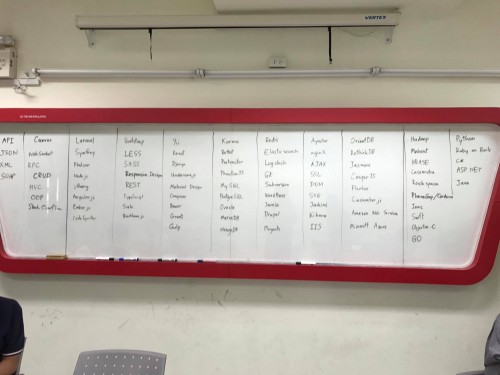 VERTEX
API
JSON
XML
SOAP
Canvas
WebSocket
RPC
CRUD
MVC
OOP
Stack Overflow
Laravel
Symfony
Phalcon
Node.js
jQuery
Angular.js
Ember.js
CodeIgniter
Bootstrap
LESS
SASS
Responsive Design
REST
TypeScript
Scala
Backbone.js
Yii
React
Django
Underscore.js
Material Design
Composer
Bower
Grunt
Gulp
Karma
Protractor
PhantomJS
MySQL
PostgreSQL
Oracle
MariaDB
MongoDB
Redis
Elasticsearch
Logstash
Git
Subversion
WordPress
Joomla
Drupal
Magento
Apache
nginx
AJAX
SSL
DOM
SVG
Jenkins
Kibana
IIS
OrientDB
RethinkDB
Jasmine
CasperJS
Amazon Web Service
Microsoft Azure
Hadoop
HBASE
Cassandra
Rackspace
PhoneGap/Cordova
Ionic
Swift
Objective-C
GO
Python
Ruby on Rails
C#
ASP.NET
Java